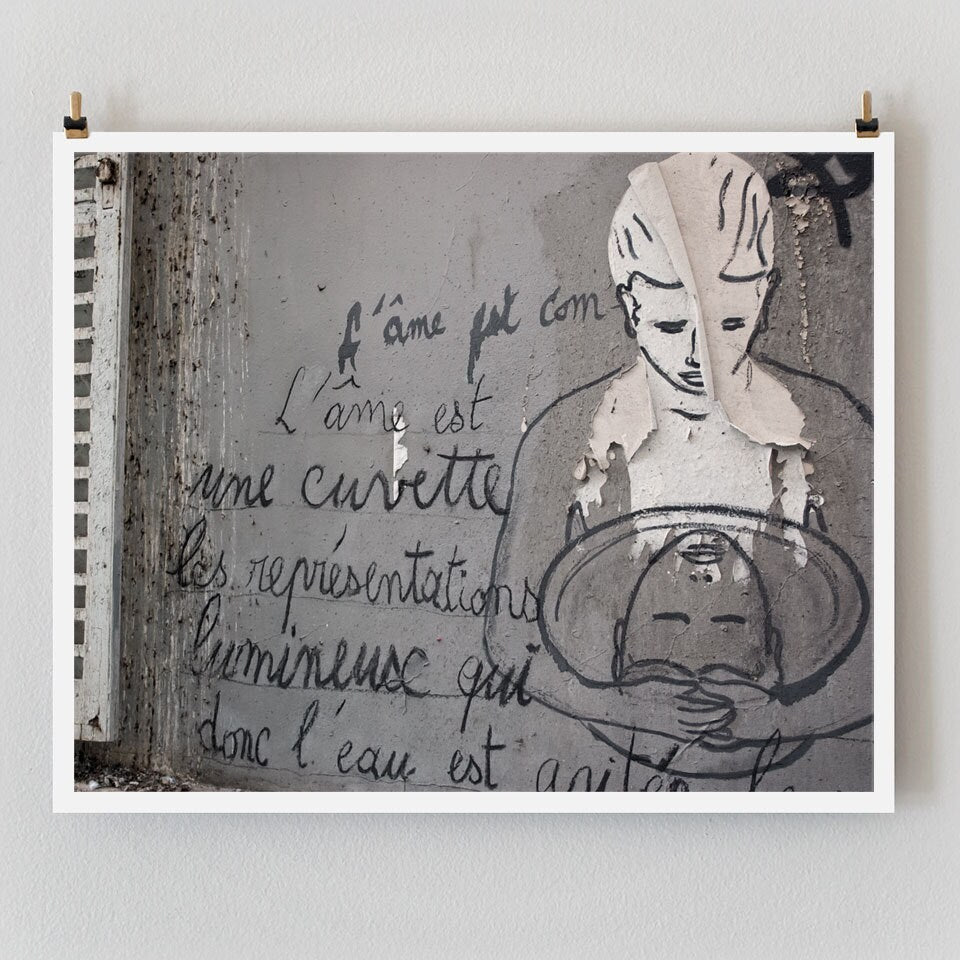 L'âme est com
L'âme est
une cuvette
les représentations
lumineux qui
donc l'eau est agitée